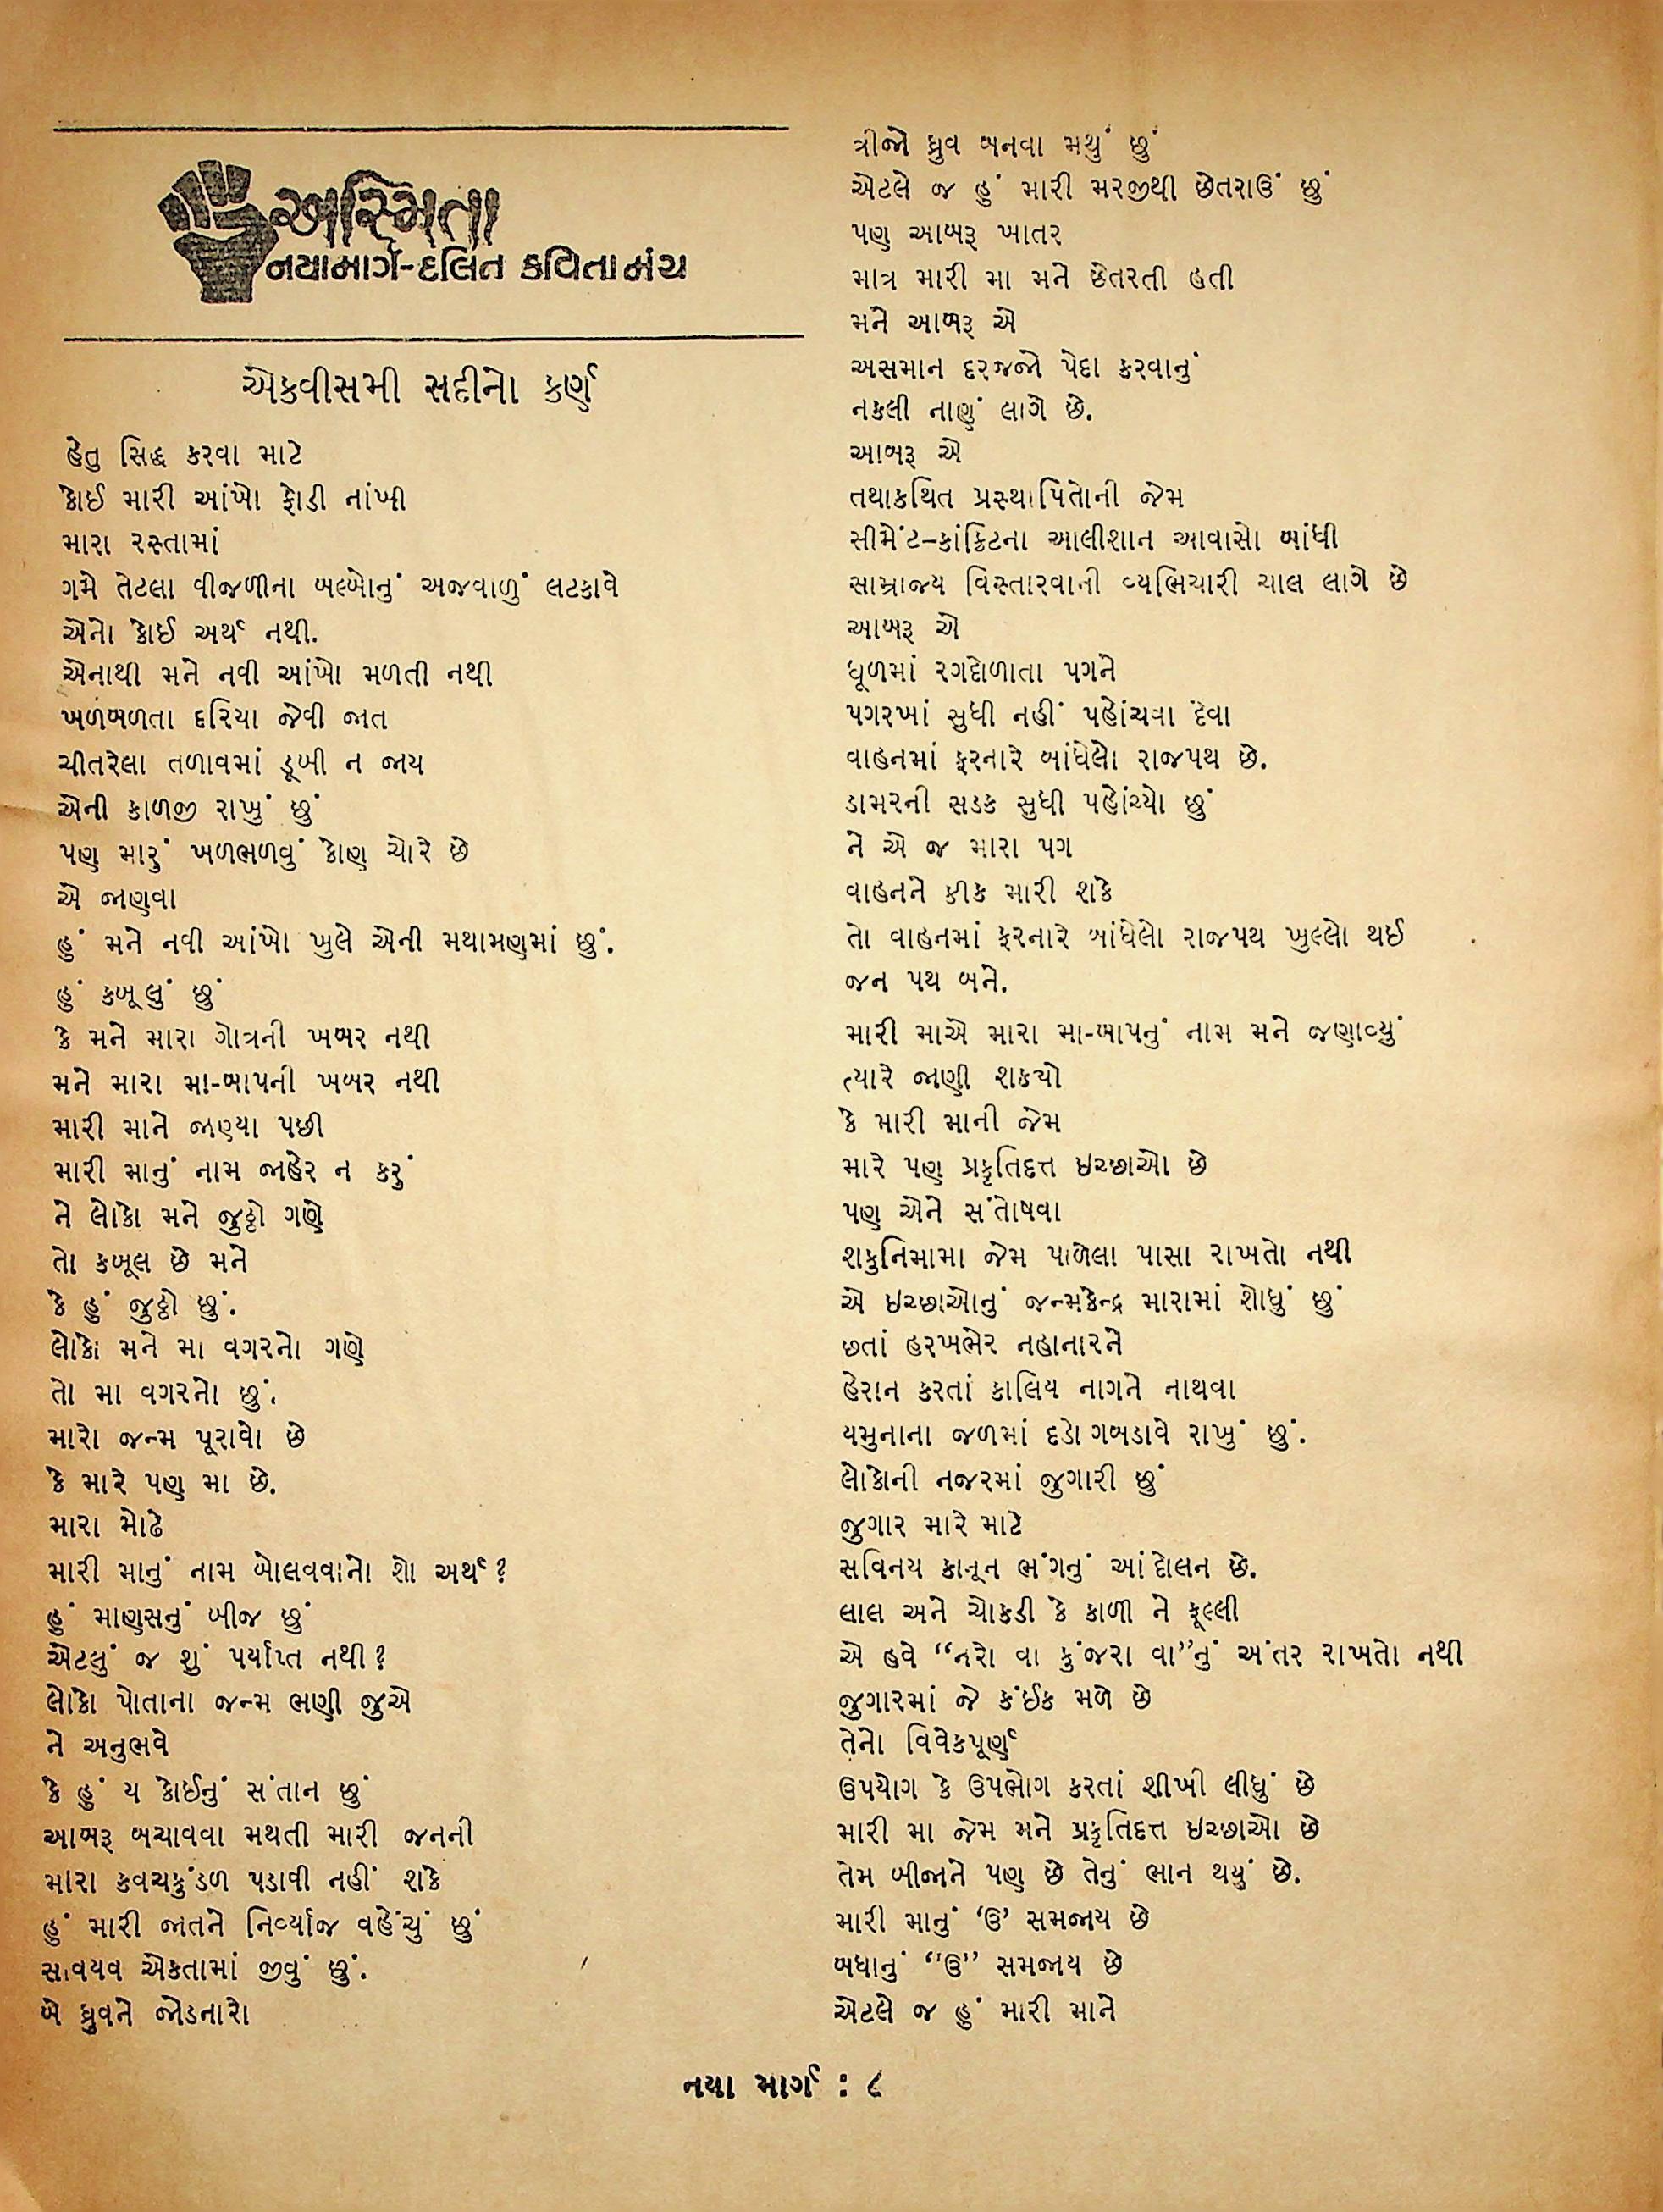 અસ્મિતા
નયામાર્ગ-દલિત કવિતા મંચ
એકવીસમી સદીનો કર્ણ
હેતુ સિદ્ધ કરવા માટે
કોઈ મારી આંખો ફોડી નાંખી
મારા રસ્તામાં
ગમે તેટલા વીજળીના બલ્બોનું અજવાળું લટકાવે
એનો કોઈ અર્થ નથી.
એનાથી મને નવી આંખો મળતી નથી
ખળબળતા દરિયા જેવી જાત
ચીતરેલા તળાવમાં ડૂબી ન જાય
એની કાળજી રાખું છું
પણ મારું ખળભળવું કોણ ચોરે છે
એ જાણવા
હું મને નવી આંખો ખુલે એની મથામણમાં છું.
હું કબૂલું છું
કે મને મારા ગોત્રની ખબર નથી
મને મારા મા-બાપની ખબર નથી
મારી માને જાણ્યા પછી
મારી માનું નામ જાહેર ન કરું
ને લોકો મને જુઠ્ઠો ગણે
તો કબૂલ છે મને
કે હું જુઠ્ઠો છું.
લોકો મને મા વગરનો ગણે
તો મા વગરનો છું.
મારો જન્મ પૂરાવો છે
કે મારે પણ મા છે.
મારા મોઢે
મારી માનું નામ બોલવવાનો શો અર્થ?
હું માણસનું બીજ છું
એટલું જ શું પર્યાપ્ત નથી?
લોકો પોતાના જન્મ ભણી જુએ
ને અનુભવે
કે હું ય કોઈનું સંતાન છું
આબરૂ બચાવવા મથતી મારી જનની
મારા કવચકુંડળ પડાવી નહીં શકે
હું મારી જાતને નિર્વ્યાજ વહેંચું છું
સાવયવ એકતામાં જીવું છું.
બે ધ્રુવને જોડનારો
ત્રીજો ધ્રુવ બનવા મથું છું
એટલે જ હું મારી મરજીથી છેતરાઉં છું
પણ આબરૂ ખાતર
માત્ર મારી મા મને છેતરતી હતી
મને આબરૂ એ
અસમાન દરજ્જો પેદા કરવાનું
નકલી નાણું લાગે છે.
આબરૂ એ
તથાકથિત પ્રસ્થાપિતોની જેમ
સીમેંટ-કાંક્રિટના આલીશાન આવાસો બાંધી
સામ્રાજ્ય વિસ્તારવાની વ્યભિચારી ચાલ લાગે છે
આબરૂ એ
ધૂળમાં રગદોળાતા પગને
પગરખાં સુધી નહીં પહોંચવા દેવા
વાહનમાં ફરનારે બાંધેલો રાજપથ છે.
ડામરની સડક સુધી પહોંચ્યો છું
ને એ જ મારા પગ
વાહનને કીક મારી શકે
તો વાહનમાં ફરનારે બાંધેલો રાજપથ ખુલ્લો થઈ
જન પથ બને.
મારી માએ મારા મા-બાપનું નામ મને જણાવ્યું
ત્યારે જાણી શક્યો
કે મારી માની જેમ
મારે પણ પ્રકૃતિદત્ત ઇચ્છાઓ છે
પણ એને સંતોષવા
શકુનિમામા જેમ પાળેલા પાસા રાખતો નથી
એ ઇચ્છાઓનું જન્મકેન્દ્ર મારામાં શોધું છું
છતાં હરખભેર નહાનારને
હેરાન કરતાં કાલિય નાગને નાથવા
યમુનાના જળમાં દડો ગબડાવે રાખું છું.
લોકોની નજરમાં જુગારી છું
જુગાર મારે માટે
સવિનય કાનૂન ભંગનું આંદોલન છે.
લાલ અને ચોકડી કે કાળી ને ફૂલ્લી
એ હવે “નરો વા કુંજરા વા”નું અંતર રાખતો નથી
જુગારમાં જે કંઈક મળે છે
તેનો વિવેકપૂર્ણ
ઉપયોગ કે ઉપભોગ કરતાં શીખી લીધું છે
મારી મા જેમ મને પ્રકૃતિદત્ત ઇચ્છાઓ છે
તેમ બીજાને પણ છે તેનું ભાન થયું છે.
મારી માનું ‘ઉ’ સમજાય છે
બધાનું “ઉ” સમજાય છે
એટલે જ હું મારી માને
નયા માર્ગ : ૮